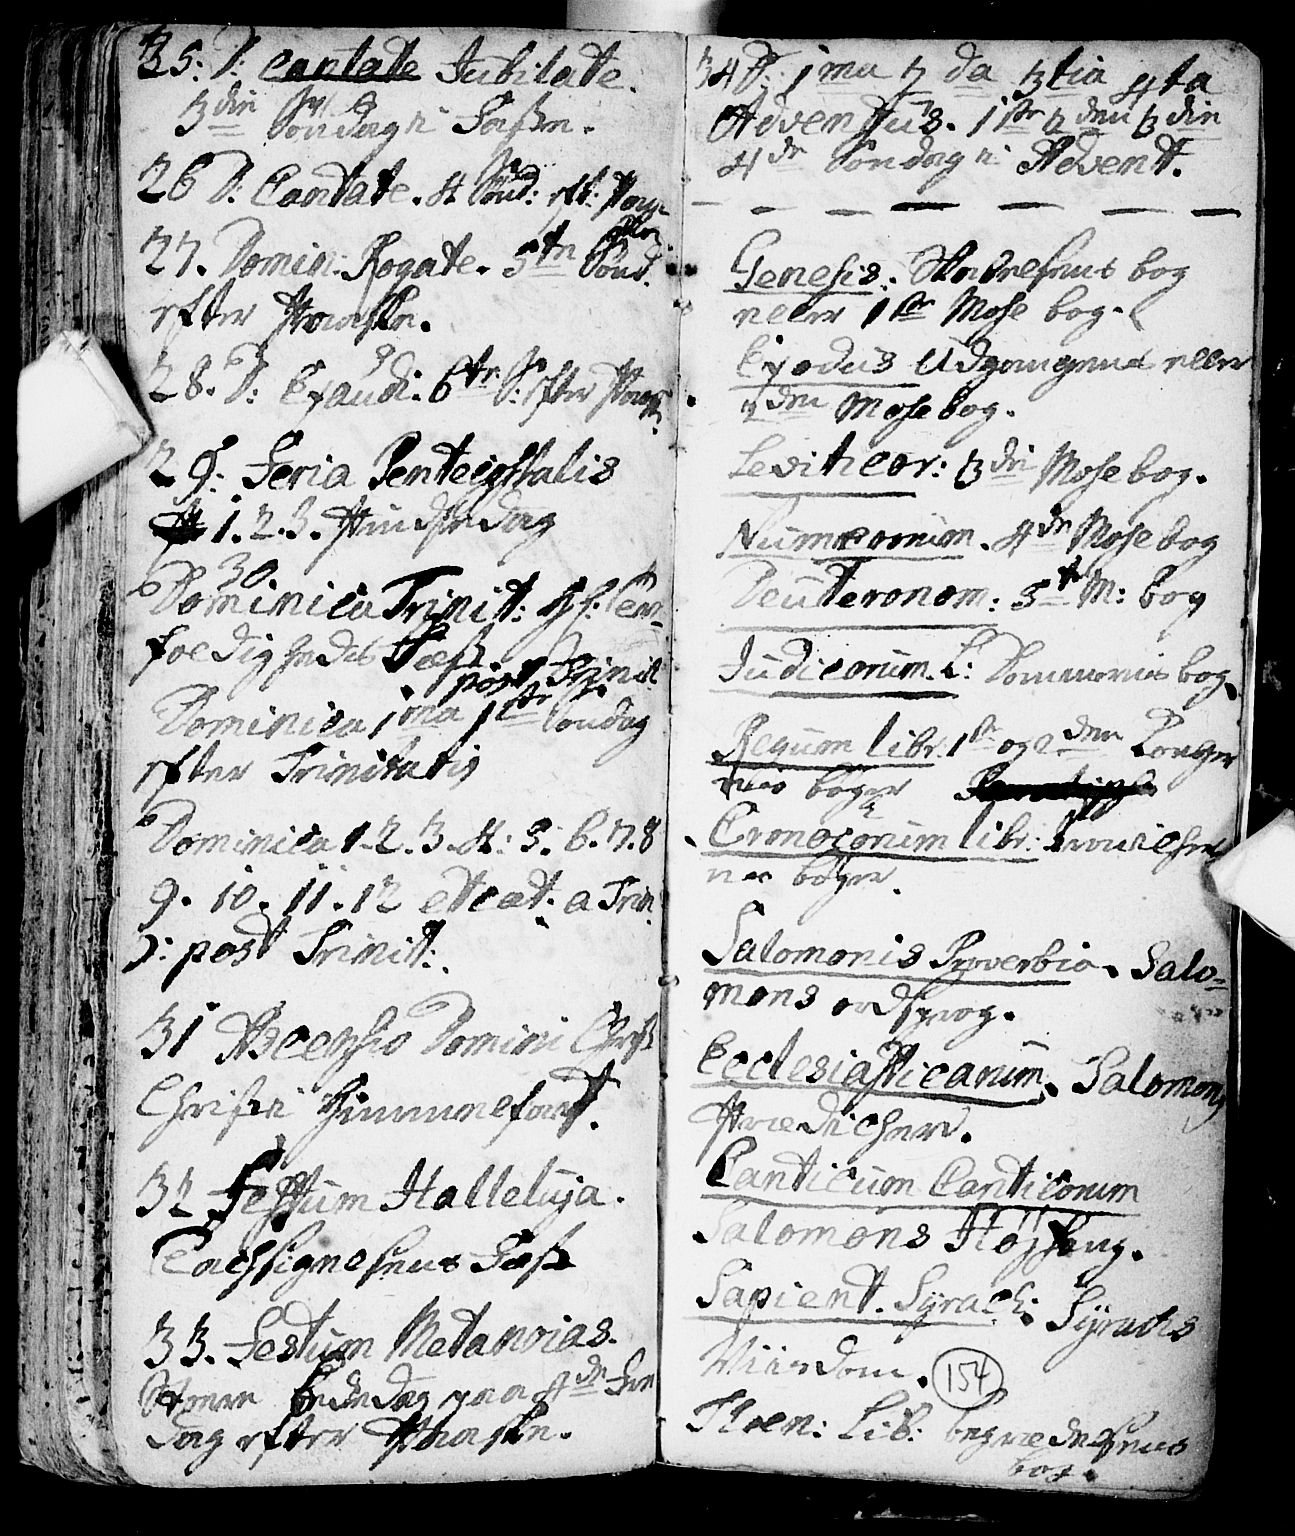 35: D: Cantate Jubilate.
3die Søndag i Faste.
26 D: Cantate. 4 Sønd: eft: Paaske
27. Domin: Rogate. 5te Sønd.
efter Paaske.
28. D: Exaudi. 6te S: efter Paaske
29: Feria Pentecostalis
1. 2. 3. Pindsedag
30.
Dominica Trinit: H: f: Tre-
foldigheds Fæst.
post Trinit
Dominica 1ma 1ste Søndag
efter Trinitatis
Dominica 1. 2. 3. 4: 5. 6. 7. 8
9. 10. 11. 12 etcæt. a Trin
D: post Trinit:
31 Ascensio Domini Christ
Christi Himmelfart.
32 Festum Halleluja.
Tachsigelsens Fæst
33. Festum Metanoias.
Store Bededag paa 4de Fre
dag efter Paaske.
34 D: 1ma 2da 3tia 4ta
Adventus. 1ste 2den 3die
4de Søndag i Advent.
Genesis: Skabelsens bog
eller 1ste Mose bog.
Exodus Udgangens eller
2den Mose bog.
Leviticor: 3die Mose bog.
Numerorum. 4de Mose bog
Deuteronom: 5te M: bog
Judicorum. L: Dommernis bog
Regum libr. 1ste og 2den Konger
nis bøger
Cronocorum libr: Kronicher
nes bøger.
Salomonis Proverbia. Salo-
mons ordsprog.
Ecclesiasticarum. Salomons
Prædicherd.
Canticum Canticorum
Salomons Højsang.
Sapient. Syrach: Syrachs
Viisdom. 154
Thren: Lib: begrædelsens
bog.